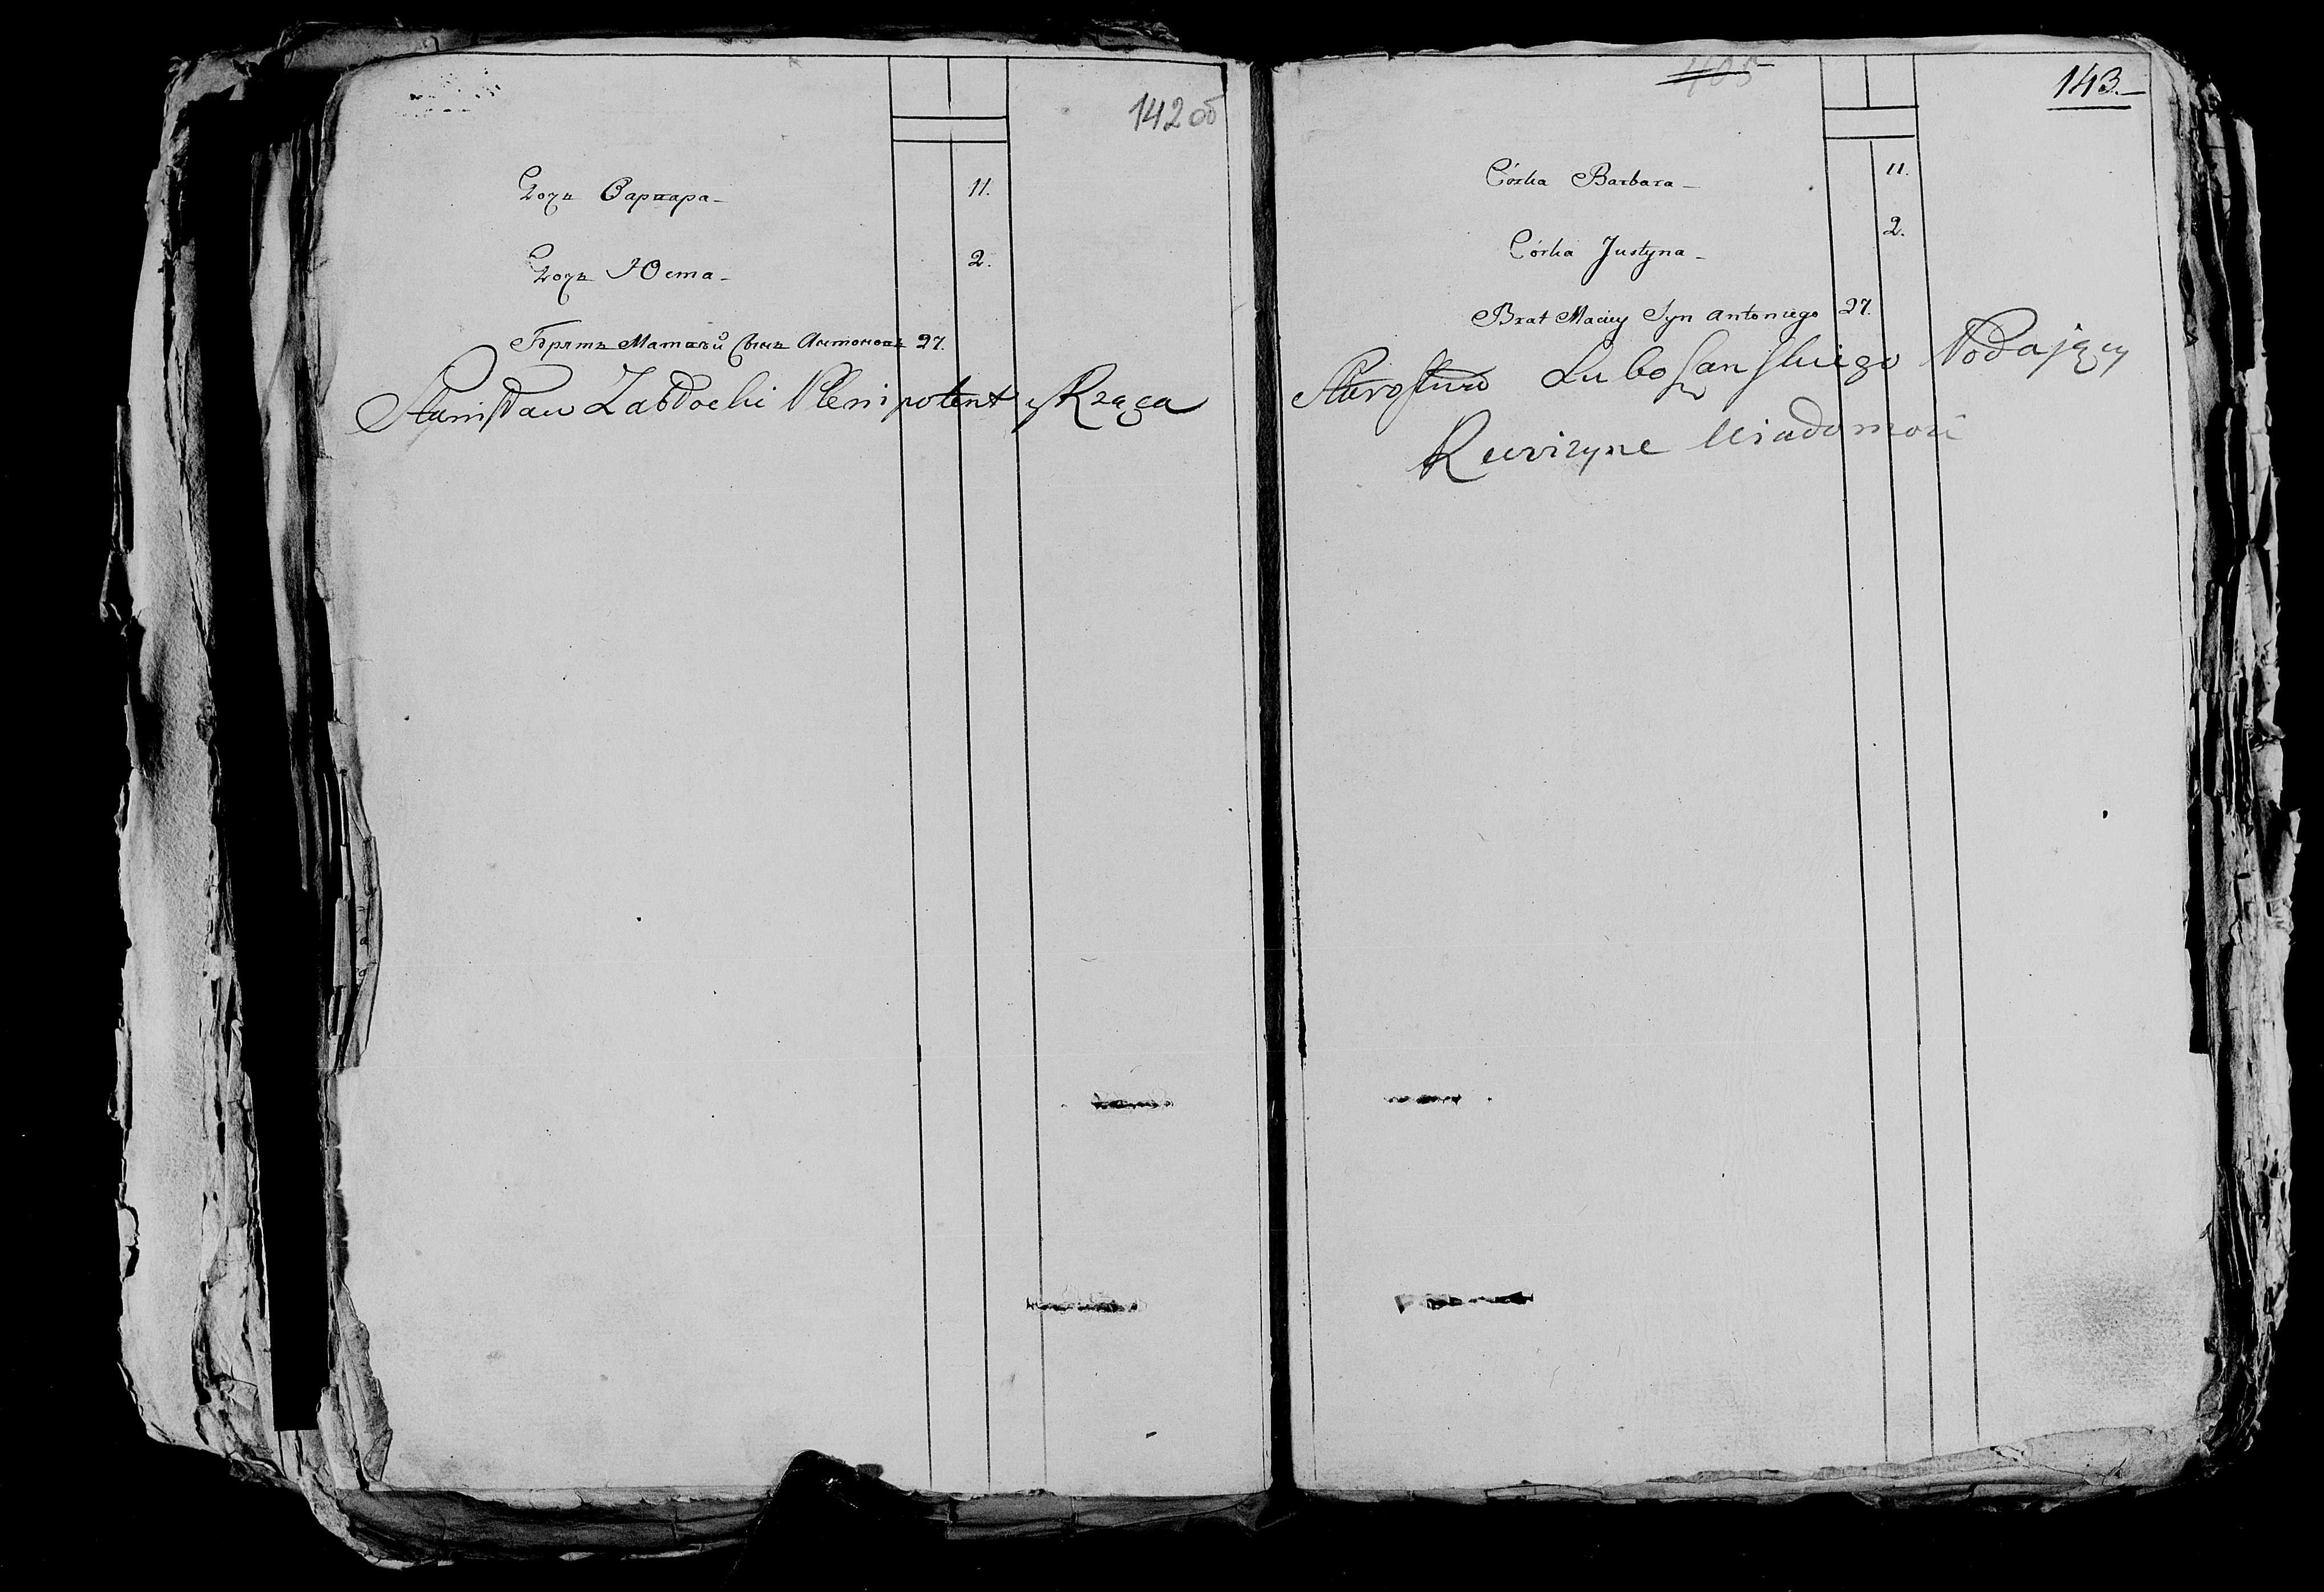 142 об
Дочь Варвара - 11.
Дочь Юста - 2.
Братъ Матвѣй Сынъ Антоновъ 27.
Stanisław Zabłocki Plenipotent y Rządca
405
143.-
Córka Barbara - 11.
Córka Justyna - 2.
Brat Maciey Syn Antoniego 27.
Starostwa Luboszanskiego Podający
Rewizyne Wiadomość